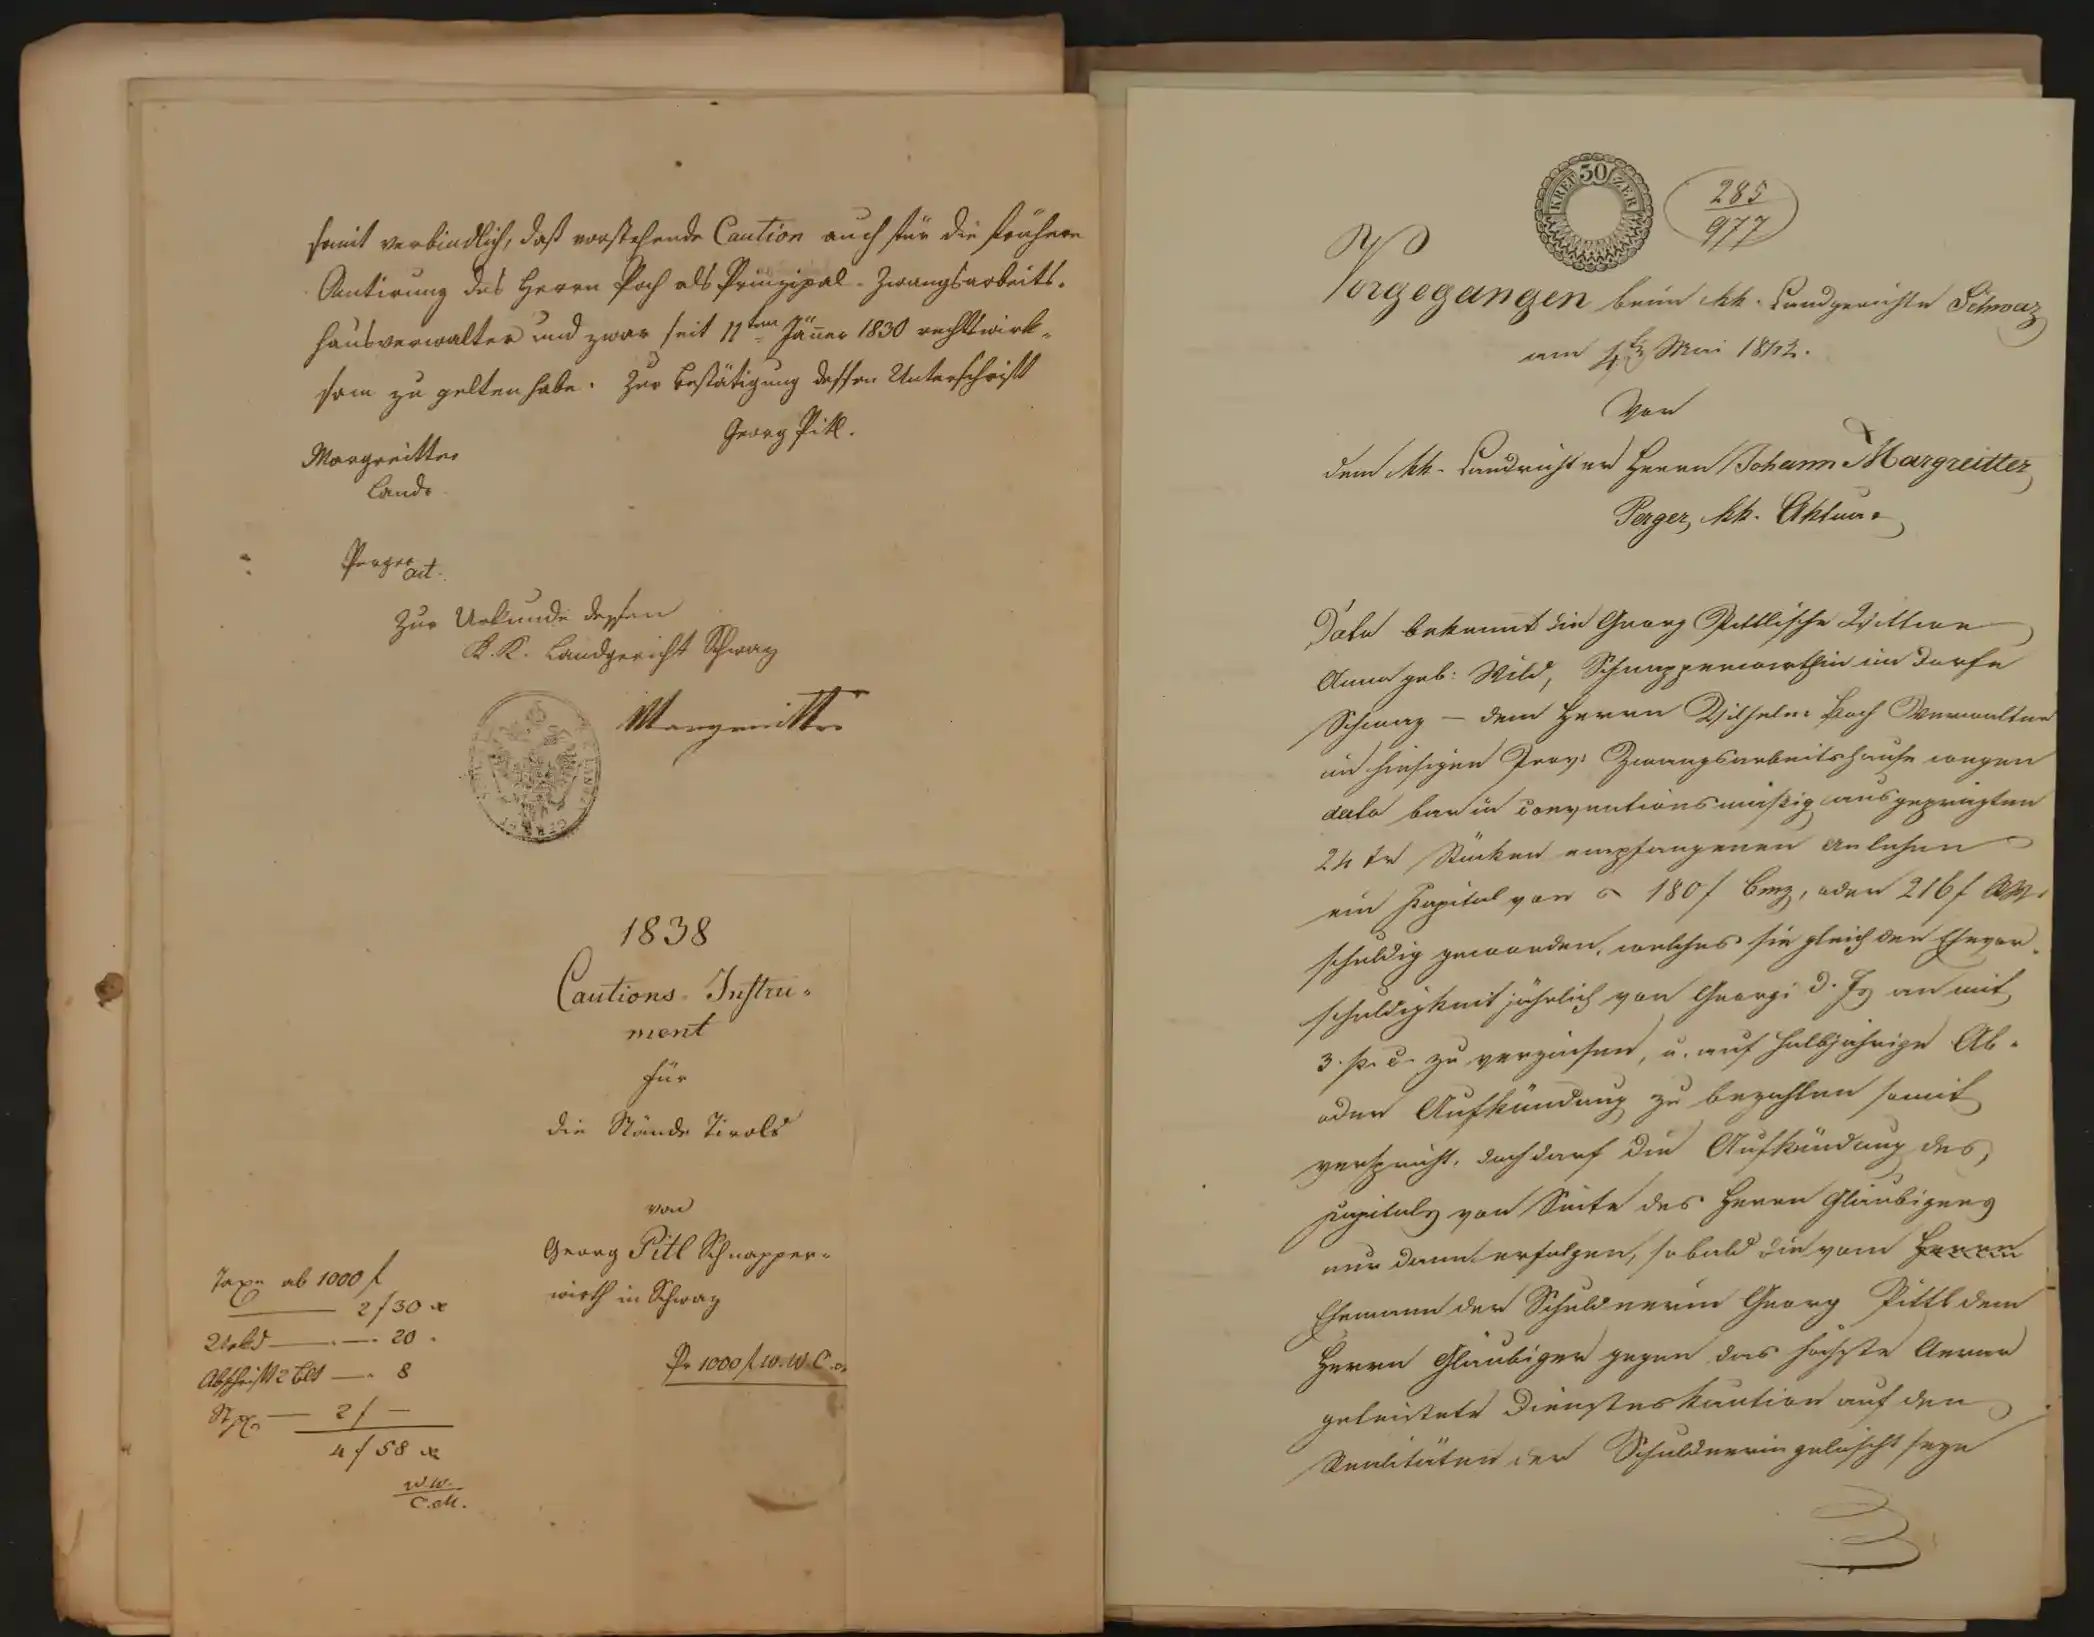 somit verbindlich, daß vorstehende Caution auch für die frühere
Amtirung des Herrn Poch als Prinzipal-Zwangsarbeits-
hausverwalter und zwar seit 11ten Jänner 1830 rechtswirk-
sam zu gelten habe. Zur Bestätigung dessen Unterschrift
Georg Pitl.
Margreitter
Landr
Perger
act.
Zur Urkunde dessen
K. K. Landgericht Schwaz
Margreitter
1838
Cautions-Instru-
ment
für
die Stände Tirols
von
Georg Pitl Schnapper-
wirth in Schwaz
Pr 1000 f W. W. C.
Taxe ab 1000 f
2 f 30 x
Urkd — 20
Abschrift 2 — 8
2 f —
4 f 58 x
W. W.
C. M.
KREU 30 ZER
285
977
Vorgegangen beim kk. Landgerichte Schwaz
am 4ten Mai 1842.
Vor
dem kk. Landrichter Herrn Johann Margreitter
Perger, kk. Aktuar
Dato bekennt die Georg Pittlische Wittwe
Anna geb: Wild, Schnapperwirthin im Dorfe
Schwaz — dem Herrn Wilhelm Poch Verwalter
im hiesigen Prov: Zwangsarbeitshause wegen
dato bar in conventionsmäßig ausgeprägten
24 kr Stücken empfangenen Anlehen
ein Kapital von 180 f Cmz, oder 216 f RW.
schuldig geworden, welches sie gleich der Ehevor-
schuldigkeit jährlich von Georgi d. Js an mit
3 p. c. zu verzinsen, u. auf halbjährige Ab-
oder Aufkündung zu bezahlen somit
verspricht, doch darf die Aufkündung des
Kapitals von Seite des Herrn Gläubigers
nur dann erfolgen, sobald die vom Herrn
Ehemann der Schuldnerin Georg Pittl dem
Herrn Gläubiger gegen das höchste Aerar
geleistete Dienstes Kaution auf den
Realitäten der Schuldnerin gelöscht seyn